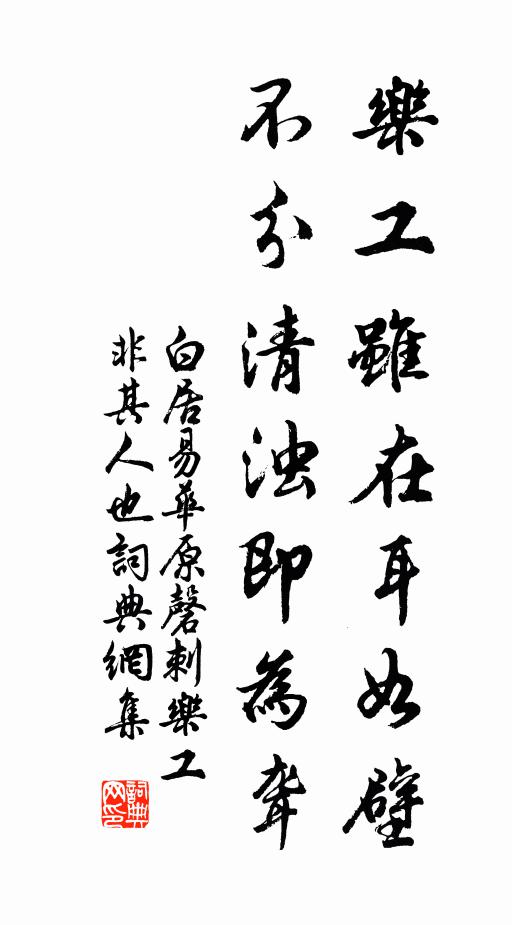 樂工雖在耳如壁
不分清浊即為聾
白居易華原磬刺樂工
非其人也詞典網集
詞典网印